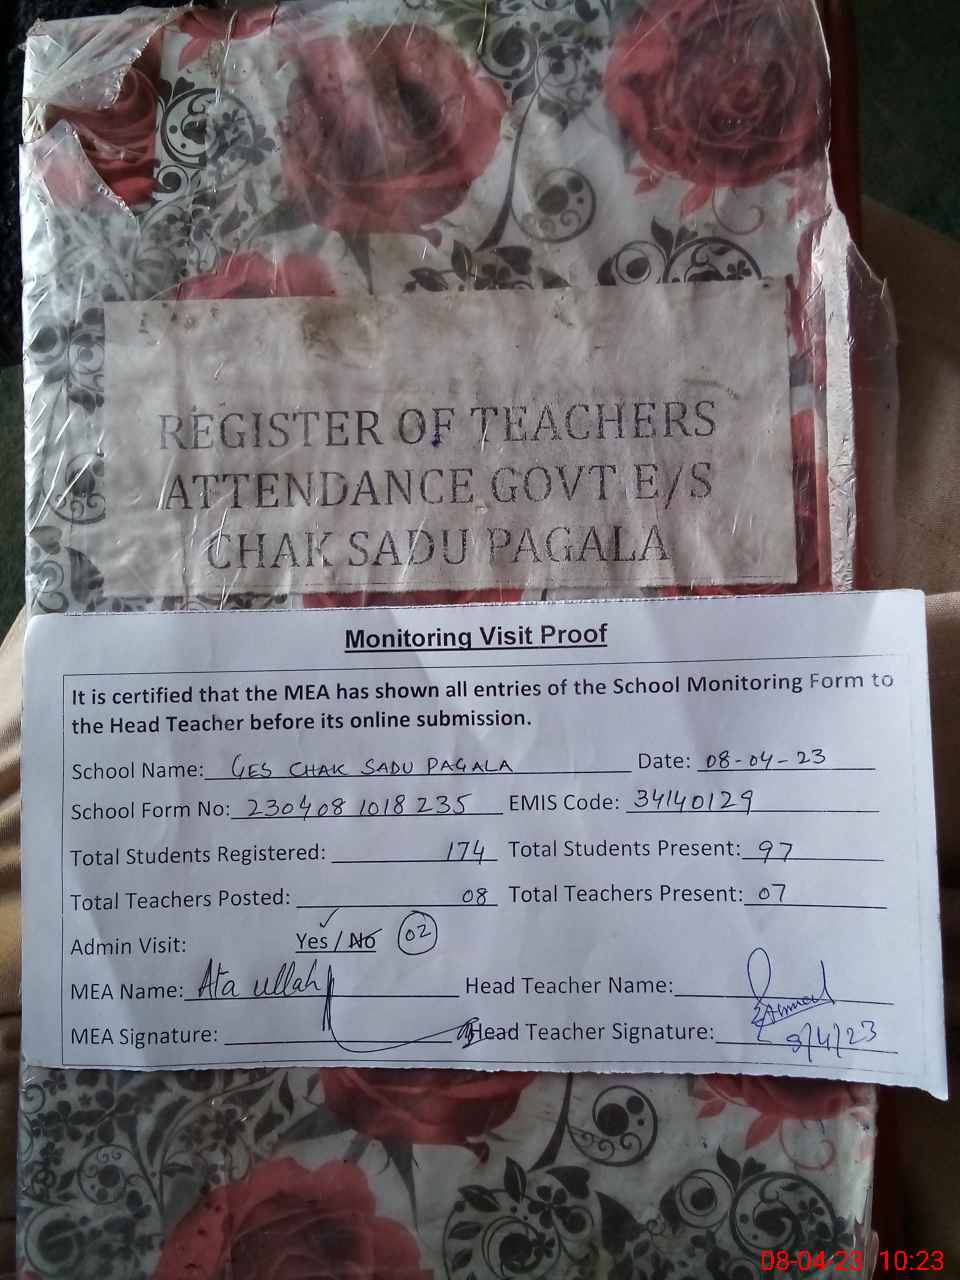 REGISTER OF TEACHERS
ATTENDANCE GOVT E/S
CHAK SADU PAGALA
Monitoring Visit Proof
It is certified that the MEA has shown all entries of the School Monitoring Form to
the Head Teacher before its online submission.
School Name: GES CHAK SADU PAGALA Date: 08-04-23
School Form No: 230408 1018 235 EMIS Code: 34140129
Total Students Registered: 174 Total Students Present: 97
Total Teachers Posted: 08 Total Teachers Present: 07
Admin Visit: Yes / No 02
MEA Name: Ata ullah Head Teacher Name:
MEA Signature: Head Teacher Signature: 8/4/23
08-04-23 10:23